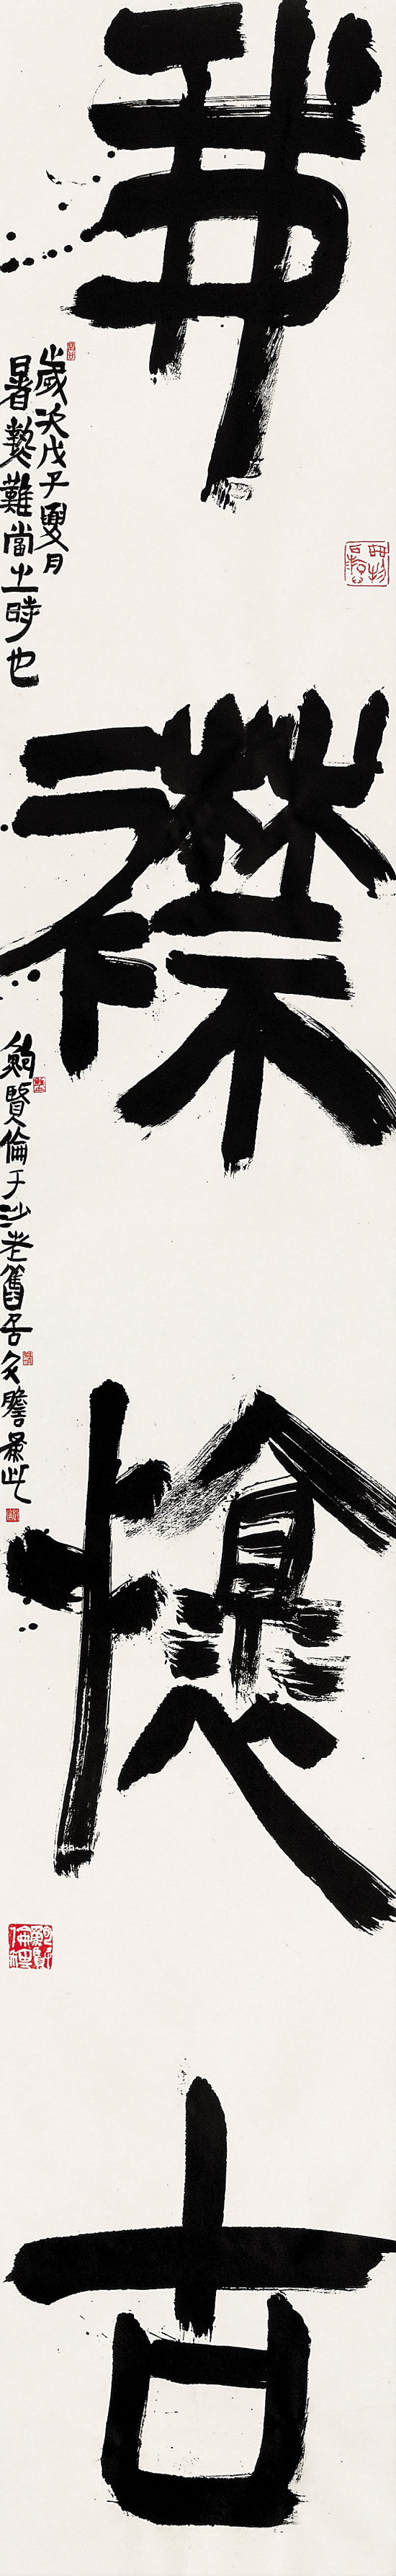 我襟懷古
歲次戊子夏月
暑熱難當之時也
鮑賢倫于沙老舊居